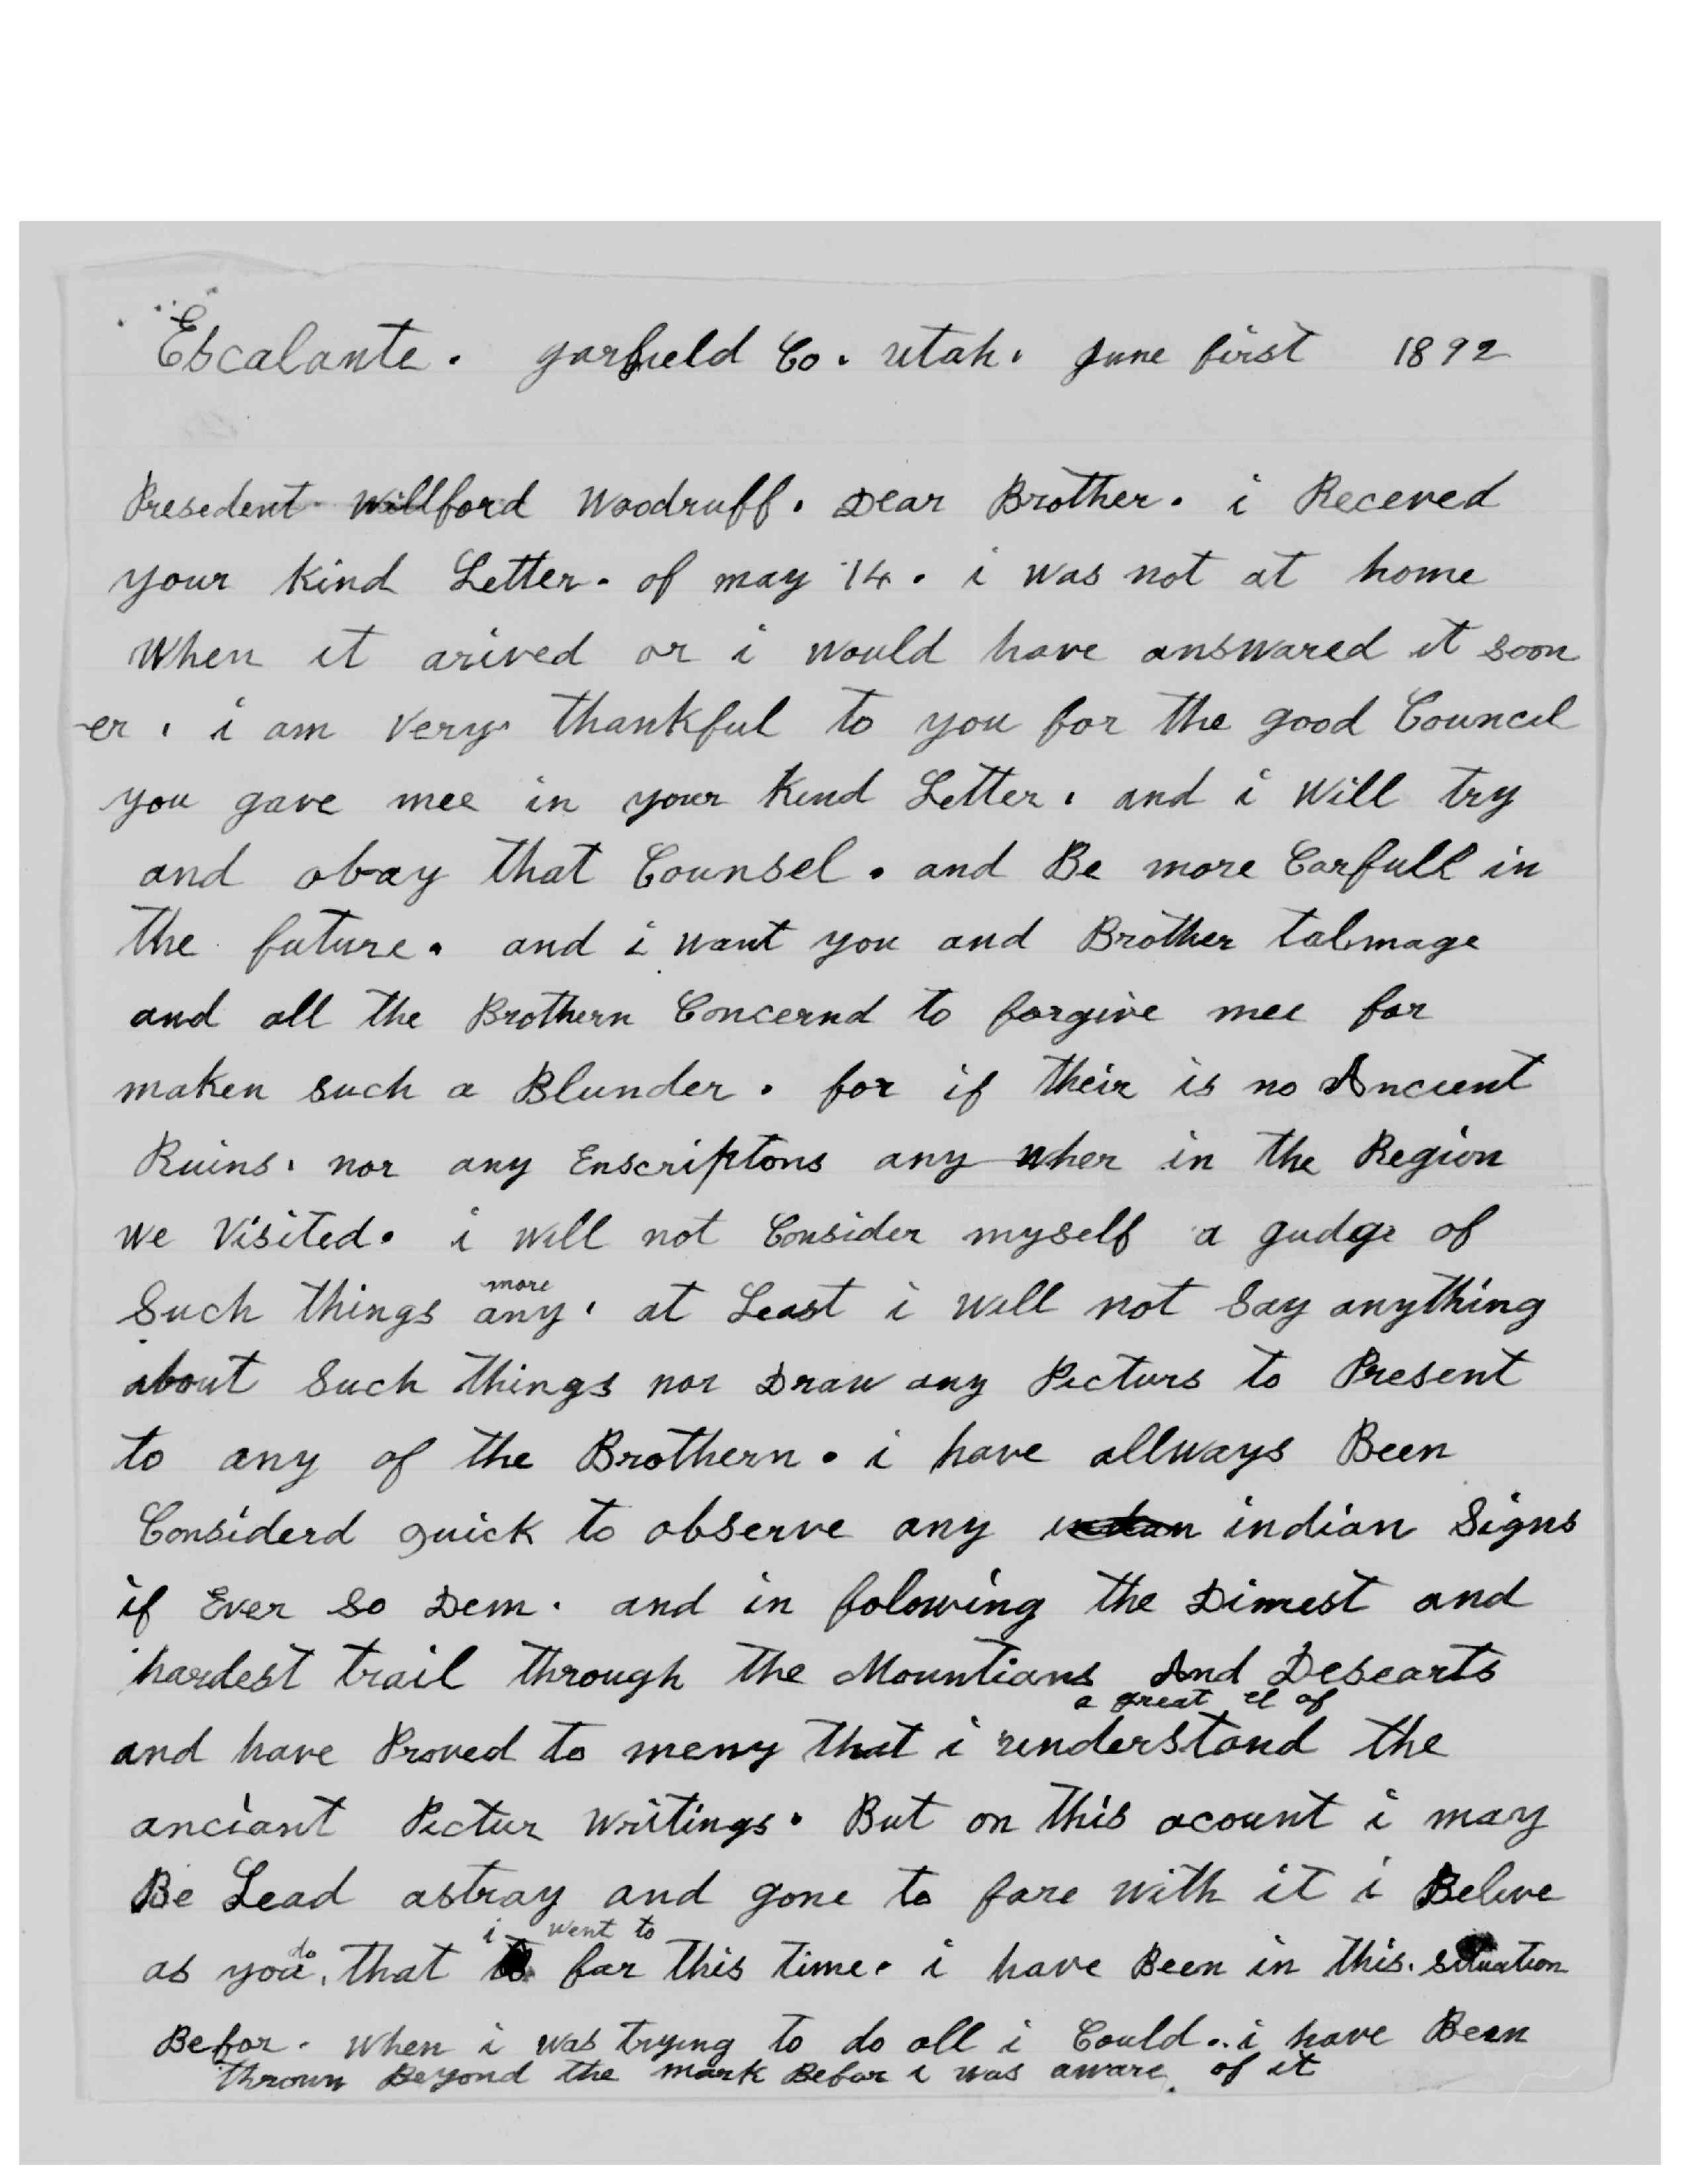 Escalante. garfield Co. utah. June first 1892
Presedent Willford Woodruff. Dear Brother. i Receved
your kind Letter. of may 14. i was not at home
When it arived or i would have answared it soon
-er. i am very thankful to you for the good Council
you gave mee in your kend Letter. and i will try
and obay that Counsel. and Be more Carfull in
the future. and i want you and Brother talmage
and all the Brothern Concernd to forgive mee for
maken such a Blunder. for if their is no Ancient
Ruins. nor any Enscriptons any wher in the Region
we visited. i will not Consider myself a gudge of
more
Such things any. at Least i will not say anything
about Such things nor Draw any Picturs to Present
to any of the Brothern. i have allways Been
Considerd quick to observe any indian indian Signs
if Ever so Dem. and in folowing the Dimest and
hardest trail through the Mountians And Desearts
a great el of
and have Proved to meny that i understand the
anciant Pictur writings. But on this acount i may
Be Lead astray and gone to fare with it i Belive
do i went to
as you, that far this time. i have Been in this. situation
Befor. when i was trying to do all i Could.. i have Been
thrown Beyond the mark Befor i was aware. of it